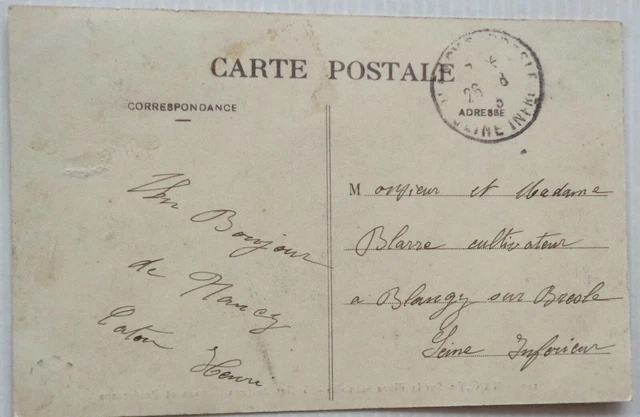 CARTE POSTALE
CORRESPONDANCE
ADRESSE
SEINE INFRE
Un Bonjour
de Nancy
Caton
Henri
Monsieur et Madame
Blarre cultivateur
a Blangy sur Bresle
Seine Inferieur